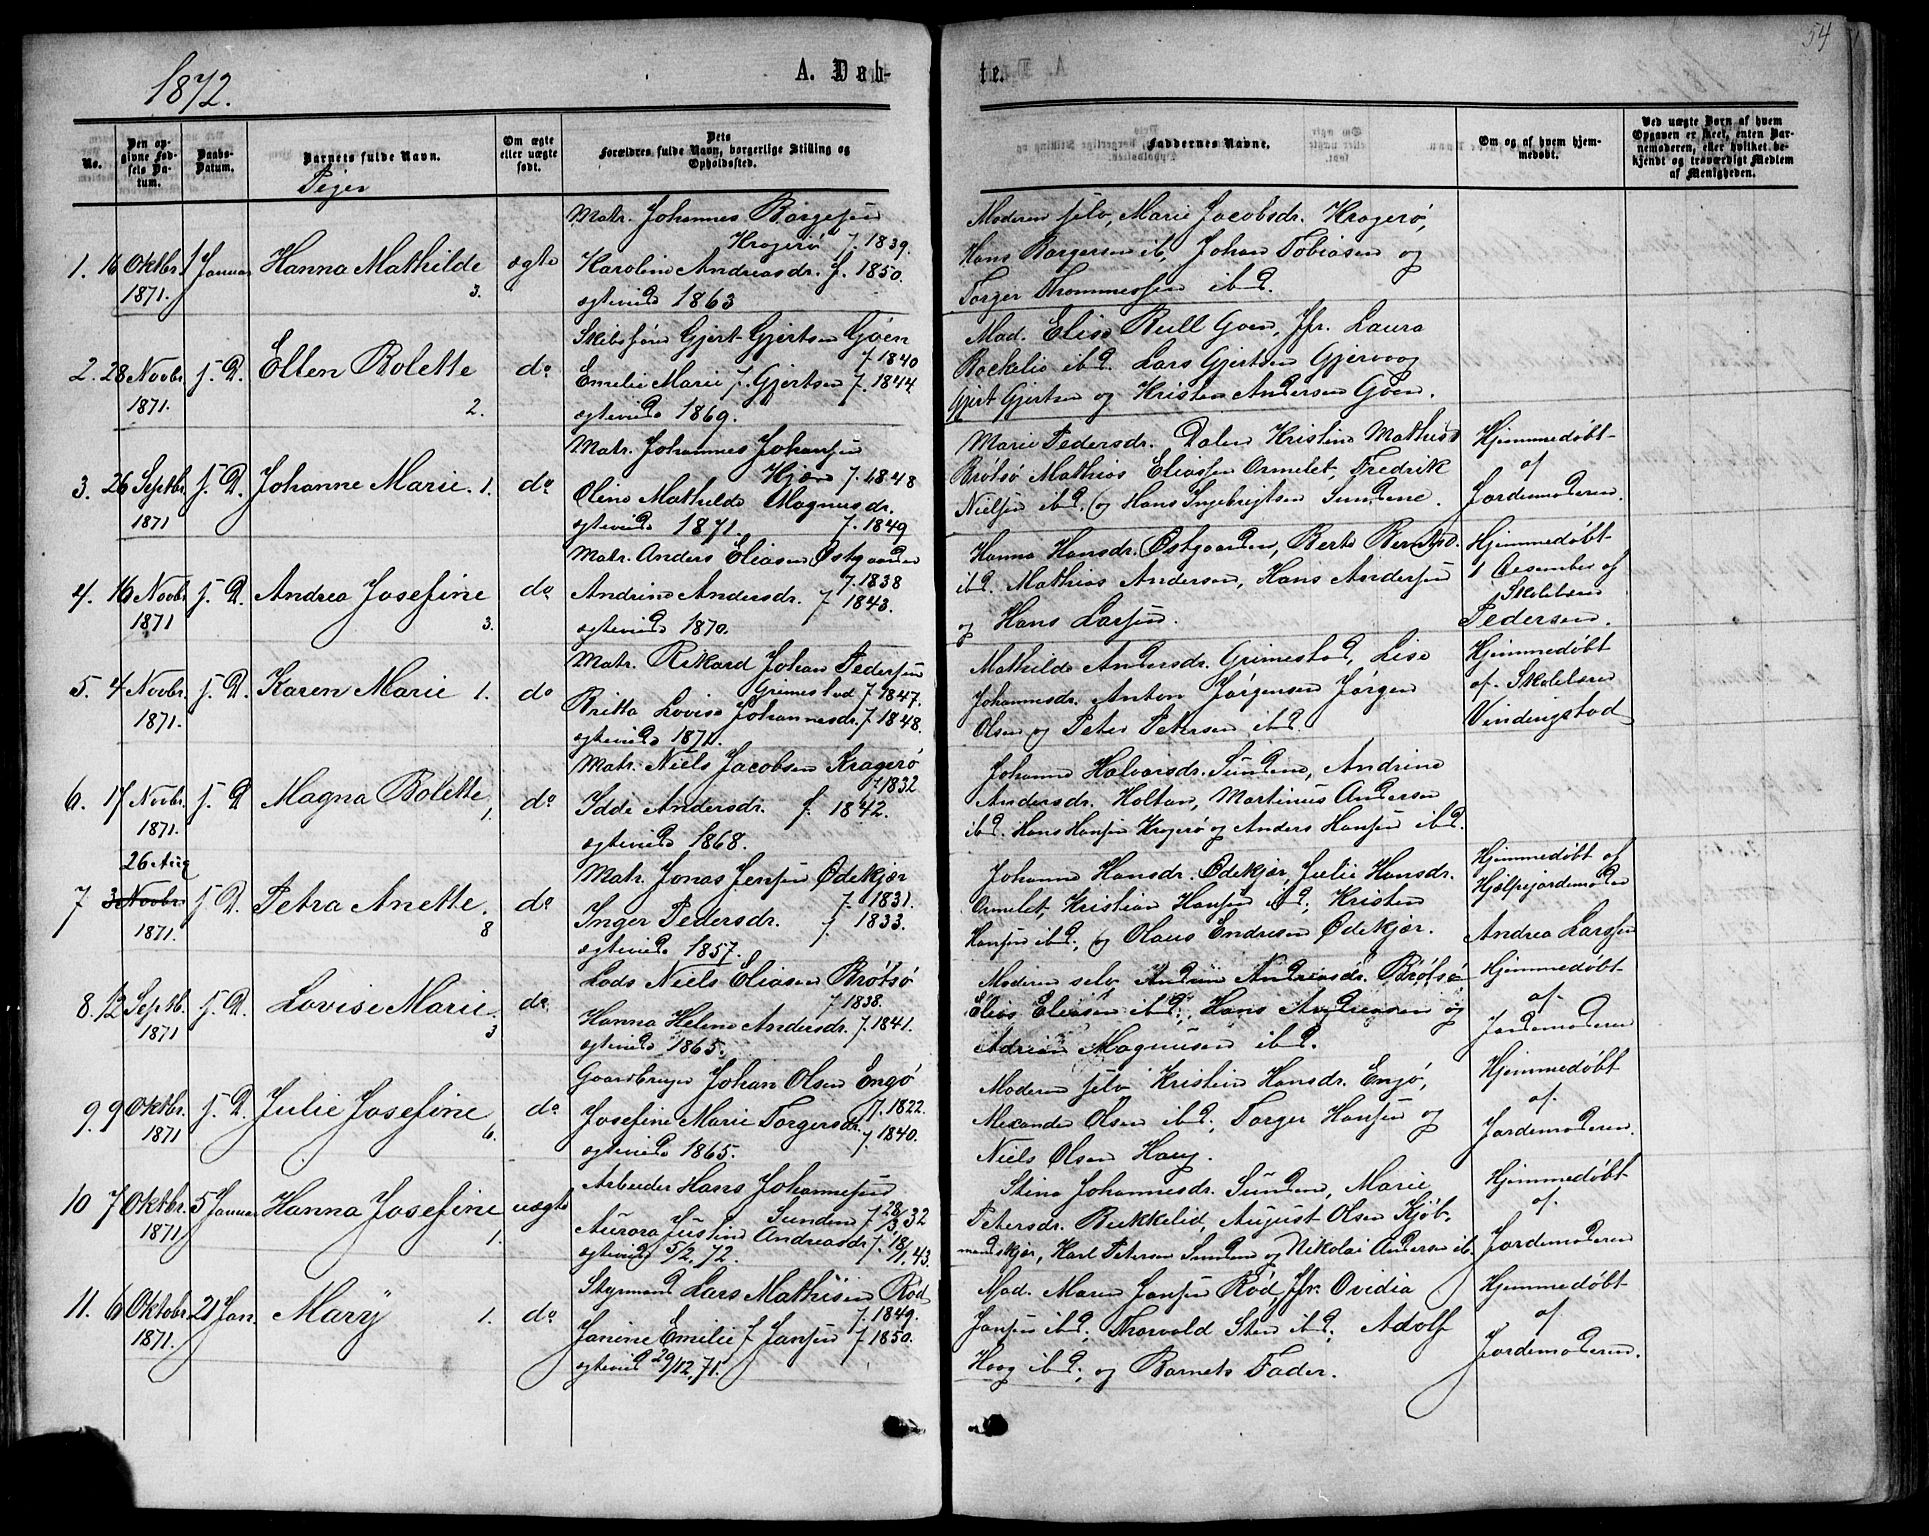 54
1872.
A. Døb-
te.
No.
Den op-
givne Fød-
sels Da-
tum.
Daabs-
Datum.
Barnets fulde Navn.
Piger
Om ægte
eller uægte
født.
Dets
Forældres fulde Navn, borgerlige Stilling og
Opholdssted.
Faddernes Navne.
Om og af hvem hjem-
medøbt.
Ved uægte Børn af hvem
Opgaven er skeet, enten Bar-
nemoderen, eller hvilket be-
kjendt og troværdigt Medlem
af Menigheden.
1. 16 Oktbr. 1871. 1 Januar Hanna Mathilde 3. ægte
Matr. Johannes Børgesen
Kragerø f. 1839.
Karoline Andreasdr. f. 1850.
ægteviede 1863
Moderen selv, Marie Jacobsdr. Kragerø,
Hans Børgersen ib, Johan Tobiasen og
Torger Thommessen ibd.
2. 28 Novbr. 1871. s. D. Ellen Bolette 2. do
Skibsfører Gjert Gjertsen Goen
f. 1840
Emelie Marie f. Gjertsen f. 1844
ægteviede 1869.
Mad. Elise Bull Goen, Jfr. Laura
Bockelie ibd. Lars Gjertsen Gjervaag
Gjert Gjertsen og Kristen Andersen Goen.
3. 26 Septbr. 1871 s. D. Johanne Marie. 1. do
Matr. Johannes Johansen
Hjære f. 1848
Oline Mathilde Magnusdr.
ægteviede 1871. f. 1849
Marie Pedersdr. Dalen Kristine Mathisd
Brøtsø Mathias Eliassen Ormelet, Fredrik
Nielsen ibd. og Hans Ingebrigtsen Sundene.
Hjemmedøbt
af
Jordemoderen.
4. 16 Novbr. 1871 s. D. Andrea Josefine 3. do
Matr. Anders Eliasen Østgaarden
f. 1838
Andrine Andersdr. f. 1843.
ægteviede 1870.
Hanna Hansdr. Østgaarden, Berte Berntsd.
ibd. Mathias Andersen, Hans Andersen
og Hans Larsen.
Hjemmedøbt
1 Desember af
Skolelærer
Pedersen.
5. 4 Novbr. 1871. s. D. Karen Marie 1. do
Matr. Rikard Johan Pedersen
Grimestad f. 1847.
Britta Lovise Johannesdr. f. 1848.
ægteviede 1871.
Mathilde Andersdr. Grimestad, Lise
Johannesdr. Anton Jørgensen Jørgen
Olsen og Peter Petersen ibd.
Hjemmedøbt
af Skolelærer
Vindingstad
6. 17 Novbr. 1871. s. D. Magna Bolette 1. do
Matr. Niels Jacobsen Kragerø
f. 1832
Idde Andersdr. f. 1842.
ægteviede 1868.
Johanne Halvorsdr. Sundene, Andrine
Andersdr. Holtan, Martinus Andersen
ibd. Hans Hansen Kragerø og Anders Hansen ibd.
7 26 Aug 3 Novbr. 1871. s. D. Petra Anette. 8 do
Matr. Jonas Jensen Ødekjær
f. 1831.
Inger Pedersdr. f. 1833.
ægteviede 1857.
Johanne Hansdr. Ødekjær, Julie Hansdr.
Ormelet, Kristian Hansen ibd; Kristen
Hansen ibd; og Olaus Endresen Ødekjær.
Hjemmedøbt af
Hjælpejordemoderen
Andrea Larssen
8. 12 Septb. 1871 s. D. Lovise Marie. 3 do
Lods Niels Eliasen Brøtsø
f. 1838.
Hanna Helene Andersdr. f. 1841.
ægteviede 1865.
Moderen selv Andrine Andreasdr. Brøtsø
Elias Eliasen ibd; Hans Andreasen og
Adrian Magnusen ibd.
Hjemmedøbt
af
Jordemoderen
9. 9 Oktbr. 1871 s. D. Julie Josefine 6. do
Gaardbruger Johan Olsen Engø
f. 1822.
Josefine Marie Torgersdr.
f. 1840.
ægteviede 1865.
Moderen selv Kristine Hansdr. Engø,
Alexander Olsen ibd; Torger Hansen og
Niels Olsen Haug.
Hjemmedøbt
af
Jordemoderen.
10 7 Oktbr. 1871 5 Januar Hanna Josefine 1. uægte
Arbeider Hans Johannesen
Sunden f. 28/3 32
Aurora Justine Andreasdr f. 18/1. 43.
ægteviet 5/2. 72.
Stina Johannesdr. Sunden, Marie
Petersdr. Bukkelid, August Olsen Kjøb-
mandskjær, Karl Petersen Sunden og Nikolai Andersen ib.
Hjemmedøbt
af
Jordemoderen
11. 6 Oktobr 1871. 21 Jan. Mary 1. do
Styrmand Lars Mathisen Rød
f. 1849.
Janine Emilie f Jansen f. 1850.
ægteviet 29/12, 71.
Mad. Maren Jansen Rød, Jfr. Ovidia
Jansen ibd; Thorvald Sten ibd; Adolf
Haag ibd; og Barnets Fader.
Hjemmedøbt
af
Jordemoderen.